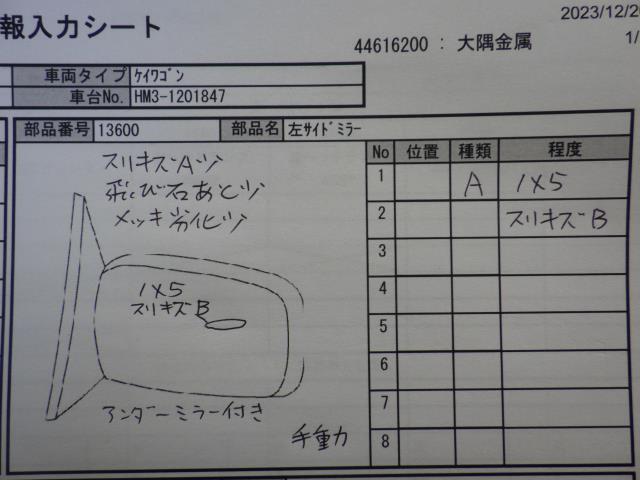 2023/12/2
報入力シート
1/
44616200 : 大隅金属
車両タイプ ｹｲﾜｺﾞﾝ
車台No. HM3-1201847
部品番号 13600 部品名 左ｻｲﾄﾞﾐﾗｰ
No 位置 種類 程度
1 A 1X5
2 スリキズB
3
4
5
6
7
8
スリキズAツ
飛び石あとツ
メッキ劣化ツ
1X5
スリキズB
アンダーミラー付き
手動